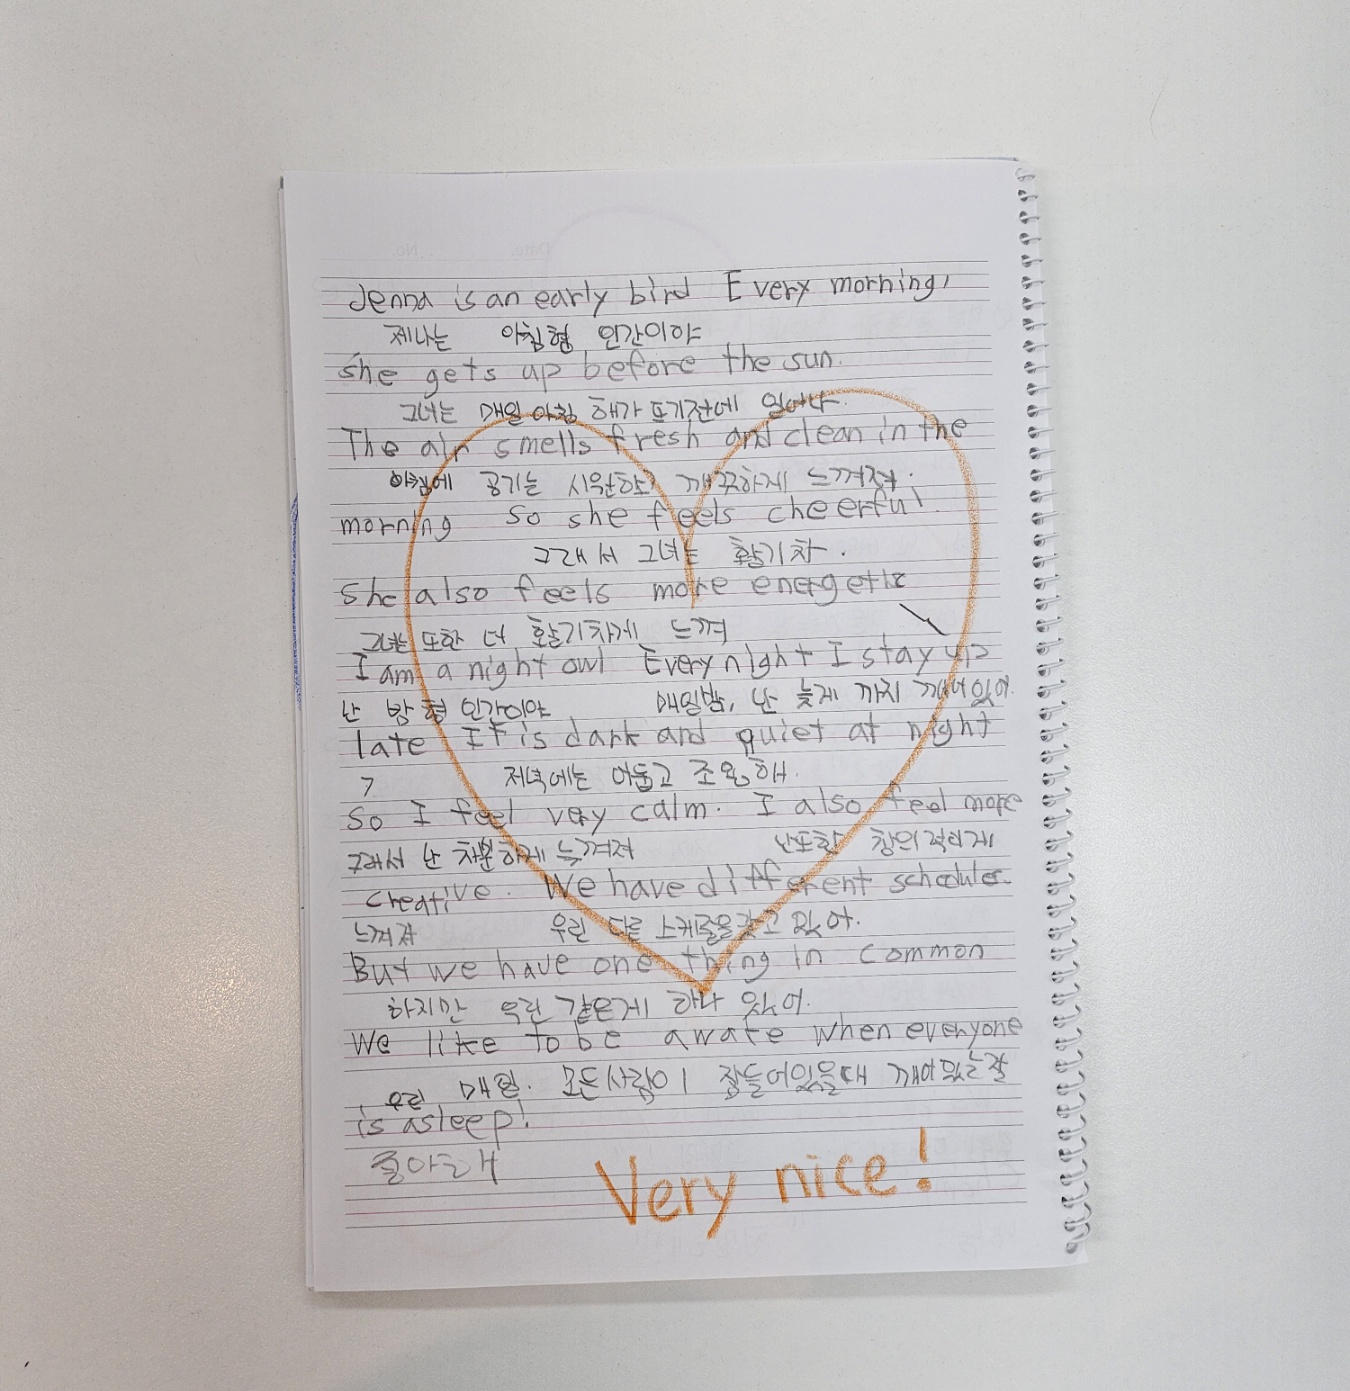 Jenna is an early bird Every morning,
제나는 아침형 인간이야
she gets up before the sun.
그녀는 매일 아침 해가 뜨기전에 일어나.
The air smells fresh and clean in the
아침에 공기는 시원하고 깨끗하게 느껴져.
morning so she feels cheerful.
그래서 그녀는 활기차.
She also feels more energetic
그녀는 또한 더 활기차게 느껴
I am a night owl Every night I stay up
난 밤 형 인간이야 매일밤, 난 늦게 까지 깨어있어.
late It is dark and quiet at night
저녁에는 어둡고 조용해.
So I feel very calm. I also feel more
그래서 난 차분하게 느껴져 난또한 창의적이게
creative. We have different schedules.
느껴져 우린 다른 스케줄을갖고 있어.
But we have one thing in common
하지만 우린 같은게 하나 있어.
We like to be awake when everyone
우린 매일. 모든사람이 잠들어있을때 깨어있는걸
is asleep!
좋아해
Very nice!